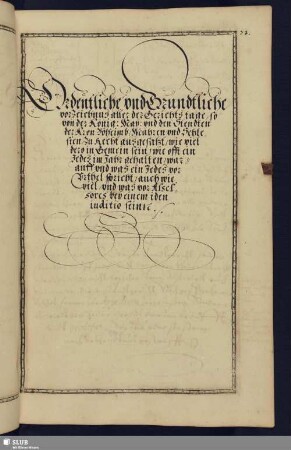 Ordentliche vnd Gründtliche
vorzeichnus aller der Gerichts tage, so
von der König: May: vnd den Stendten
der Cron Böheimb, Mähren vnd Schle
sien zu Recht ausgesatzt, wie viel
dero in Gemein sein, wie offt ein
Jedes im Jahr gehalten, war
auff vnd was ein Jedes vor
Vrthel Spricht, auch wie
viel, vnd was vor Asses
sores bey einem iden
iuditio seint
SLUB